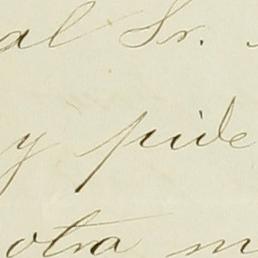 al Sr.
y pide
otra m